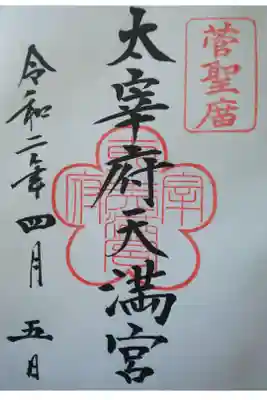 菅聖庿
太宰府天満宮
令和二年四月五日
宰
府